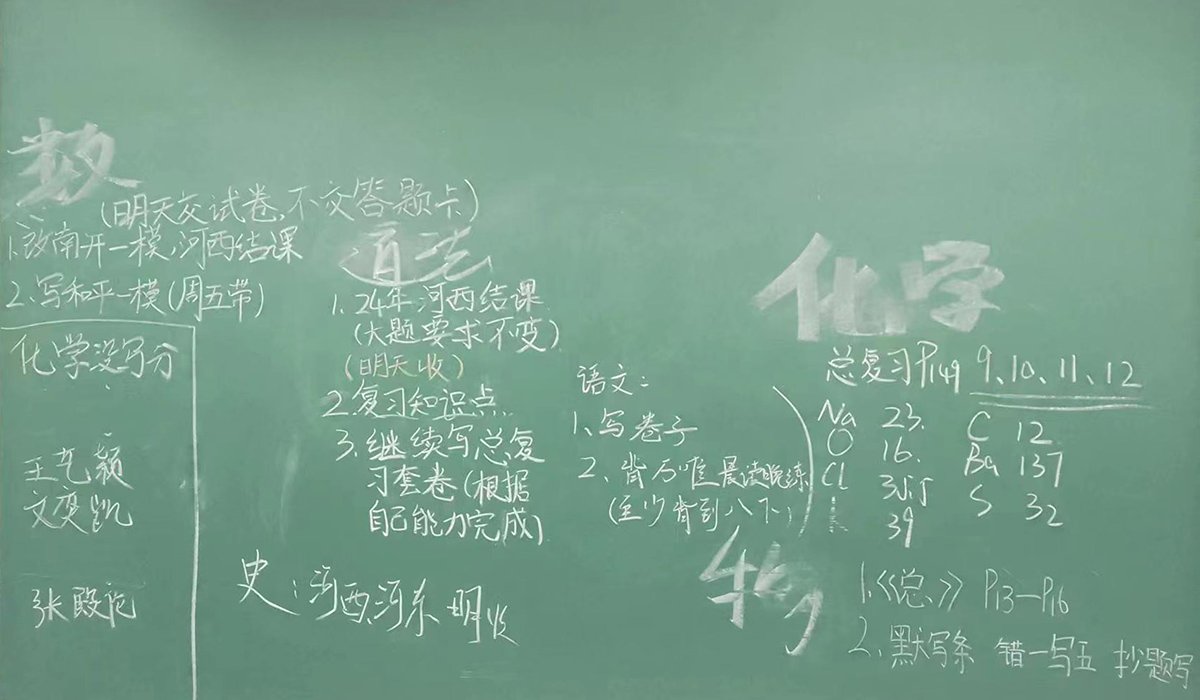 数
(明天交试卷,不交答题卡)
1.改南开一模,河西结课
2.写和平一模(周五带)
化学没写分
王艺颖
文奕凯
张殿
道法
1.24年河西结课
(大题要求不变)
(明天收)
2.复习知识点
3.继续写总复
习套卷(根据
自己能力完成)
史:河西,河东 明收
语文:
1、写卷子
2、背万唯晨读晚练
(至少背到八下)
化学
总复习P149 9、10、11、12
Na 23. C 12
O 16. Ba 137
Cl 35.5 S 32
39
物
1.《总》 P13—P16
2.默写条 错一写五 抄题写